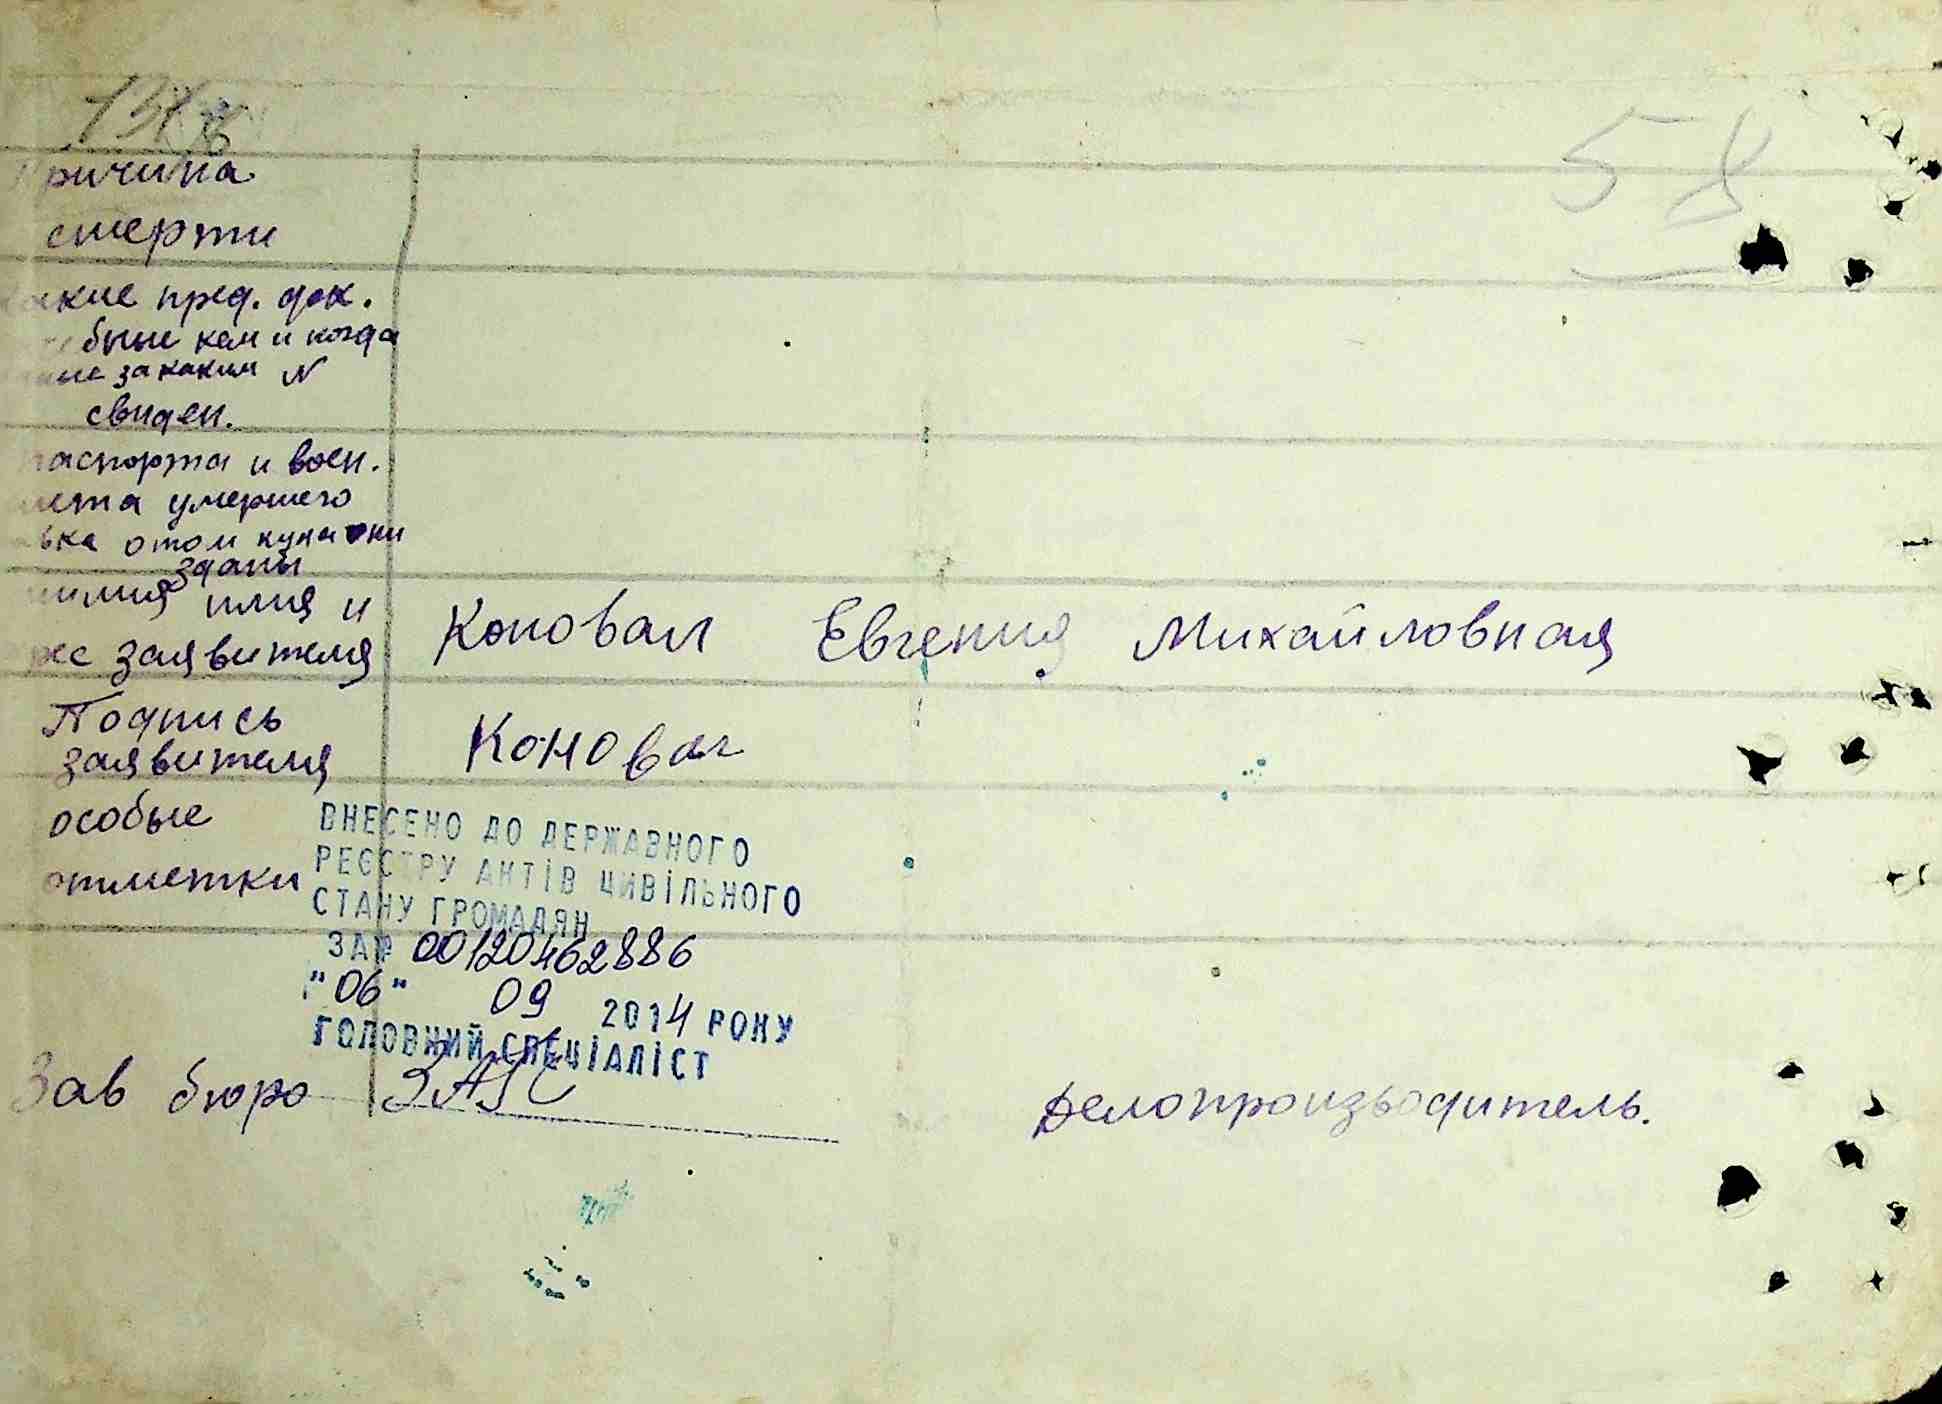 58
Причина
смерти
какие пред. док.
кем и когда
за каким N
свиден.
паспорта и воен.
умершего
отом куда они
зданы
имя и
заявителя
Коновал Евгения Михайловная
Подпись
заявителя
Коновал
особые
отметки
ВНЕСЕНО ДО ДЕРЖАВНОГО
РЕЄСТРУ АКТІВ ЦИВІЛЬНОГО
СТАНУ ГРОМАДЯН
ЗА № 00120462886
"06" 09 2014 РОКУ
ГОЛОВНИЙ СПЕЦІАЛІСТ
Зав бюро ЗАГС
Делопроизводитель.